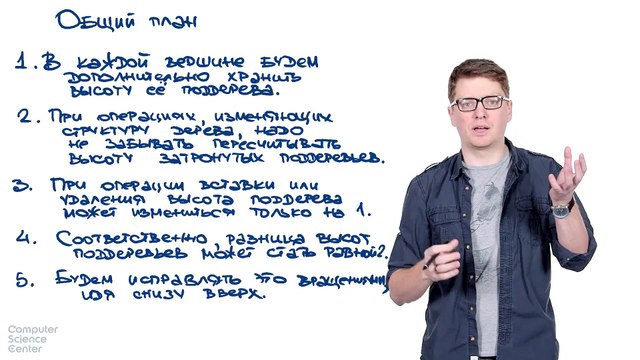 Общий план
1. В каждой вершине будем
дополнительно хранить
высоту её поддерева.
2. При операциях, изменяющих
структуру дерева, надо
не забывать пересчитывать
высоту затронутых поддеревьев.
3. При операции вставки или
удаления высота поддерева
может измениться только на 1.
4. Соответственно, разница высот
поддеревьев может стать равной 2.
5. Будем исправлять это вращениями,
идя снизу вверх.
Computer
Science
Center